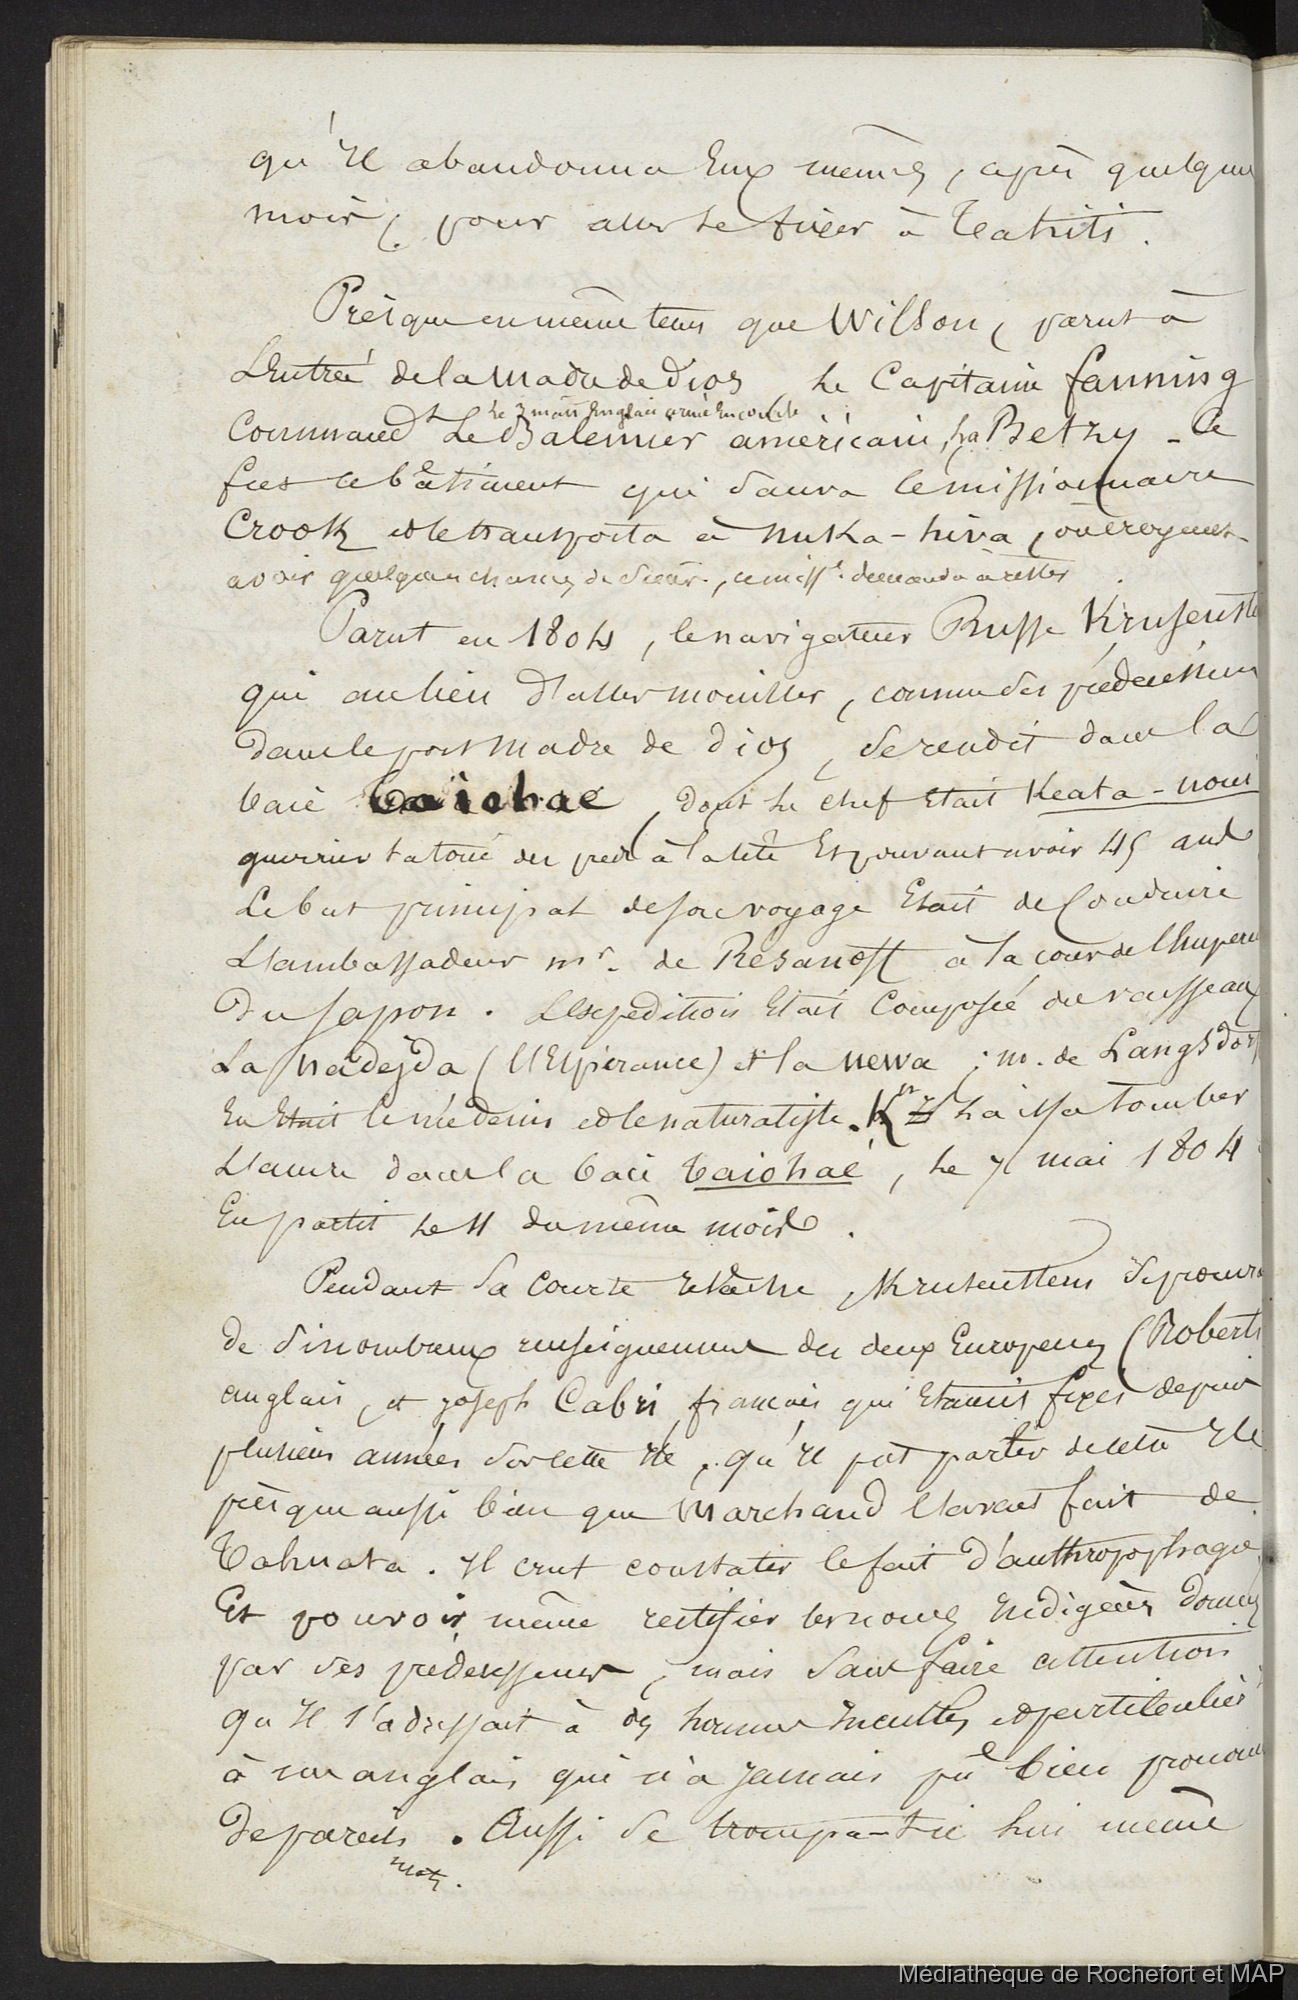 qu'Il abandonna Eux mêmes, après quelques
mois, pour aller se fixer à Teahiti.
Présque en même tems que Wilson, parut à
L'Entrée de la Madre de Dios le Capitaine fanning
le 3 mâts Anglais
Command^t Le Balenier américain, La Betzy - Ce
fut ce bâtiment qui sauva le missionnaire
Crook et le transporta à Nuka-hiva, où croyant
avoir quelques chances de succès, ce miss^re demanda à rester
Parut en 1804, le navigateur Russe Krusenste
qui au lieu d'aller mouiller, comme ses prédecesseurs
dans le port Madre de Dios, se rendit dans la
baie Taïohaé, dont le chef Etait Keata-noui
guerrier tatoué des pieds à la tête Et pouvant avoir 45 ans
Le but principal de son voyage Etait de Conduire
L'ambassadeur m^r. de Resanoff à la cour de l'Empereu
Du Japon. L'Expedition Etait Composée des vaisseaux
La Nadejda (l'Espérance) et la Newa ; m. de Langsdorf
En Etait le médecin et le naturaliste. K^n Laissa Tomber
L'ancre dans la baie Taiohaé, le 7 mai 1804
En partit le 11 du même mois.
Pendant sa courte relâche, Krusenstern se procura
de si nombreux renseignemens des deux Européens (Roberts
anglais, et Joseph Cabri, français qui Etaient fixés depuis
plusieurs années sur cette Ile, qu'Il put parler de cette Ile
présque aussi bien que Marchand l'avait fait de
Tahuata. Il crut constater le fait d'anthropophagie,
Et pouvoir même rectifier les noms Indigènes donnés
par ses prédecesseurs, mais sans faire attention
qu'Il s'adressait à des hommes Incultes et particulier
à un anglais qui n'a jamais pû bien prononc
de pareils. Aussi se trompa-t-il lui même
mots.
Médiathèque de Rochefort et MAP